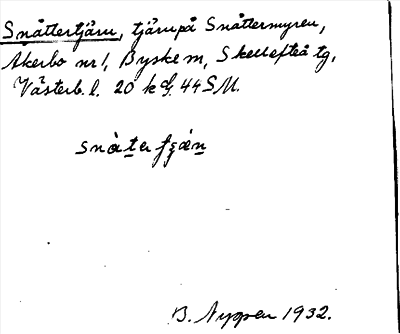 Snåttertjärn, tjärn på Snåttermyren,
Åkerbo nr 1, Byske m, Skellefteå tg,
Västerb. l. 20 k d. 44 SM.
snåter
B. Nyppen 1932.